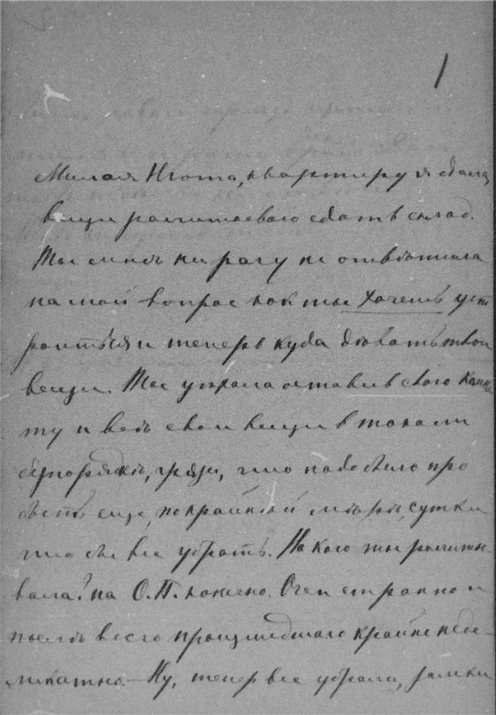 1
Милая Нюта, квартиру я сдала,
вещи рассчитываю сдать в склад.
Ты мнѣ ни разу не отвѣтила
на мой вопросъ как ты хочешь уст
роиться и теперь куда дѣвать твои
вещи. Ты уѣхала оставивъ свою комна
ту и всѣ свои вещи в таком
безпорядкѣ, грязи, что надо было про
быть еще, по крайней мѣрѣ, сутки
что бы все убрать. На кого ты рассчиты
вала? на О.П. конечно. Очен странно и
послѣ всего происшедшаго крайне неде
ликатно. — Ну, теперь все убрали, замки